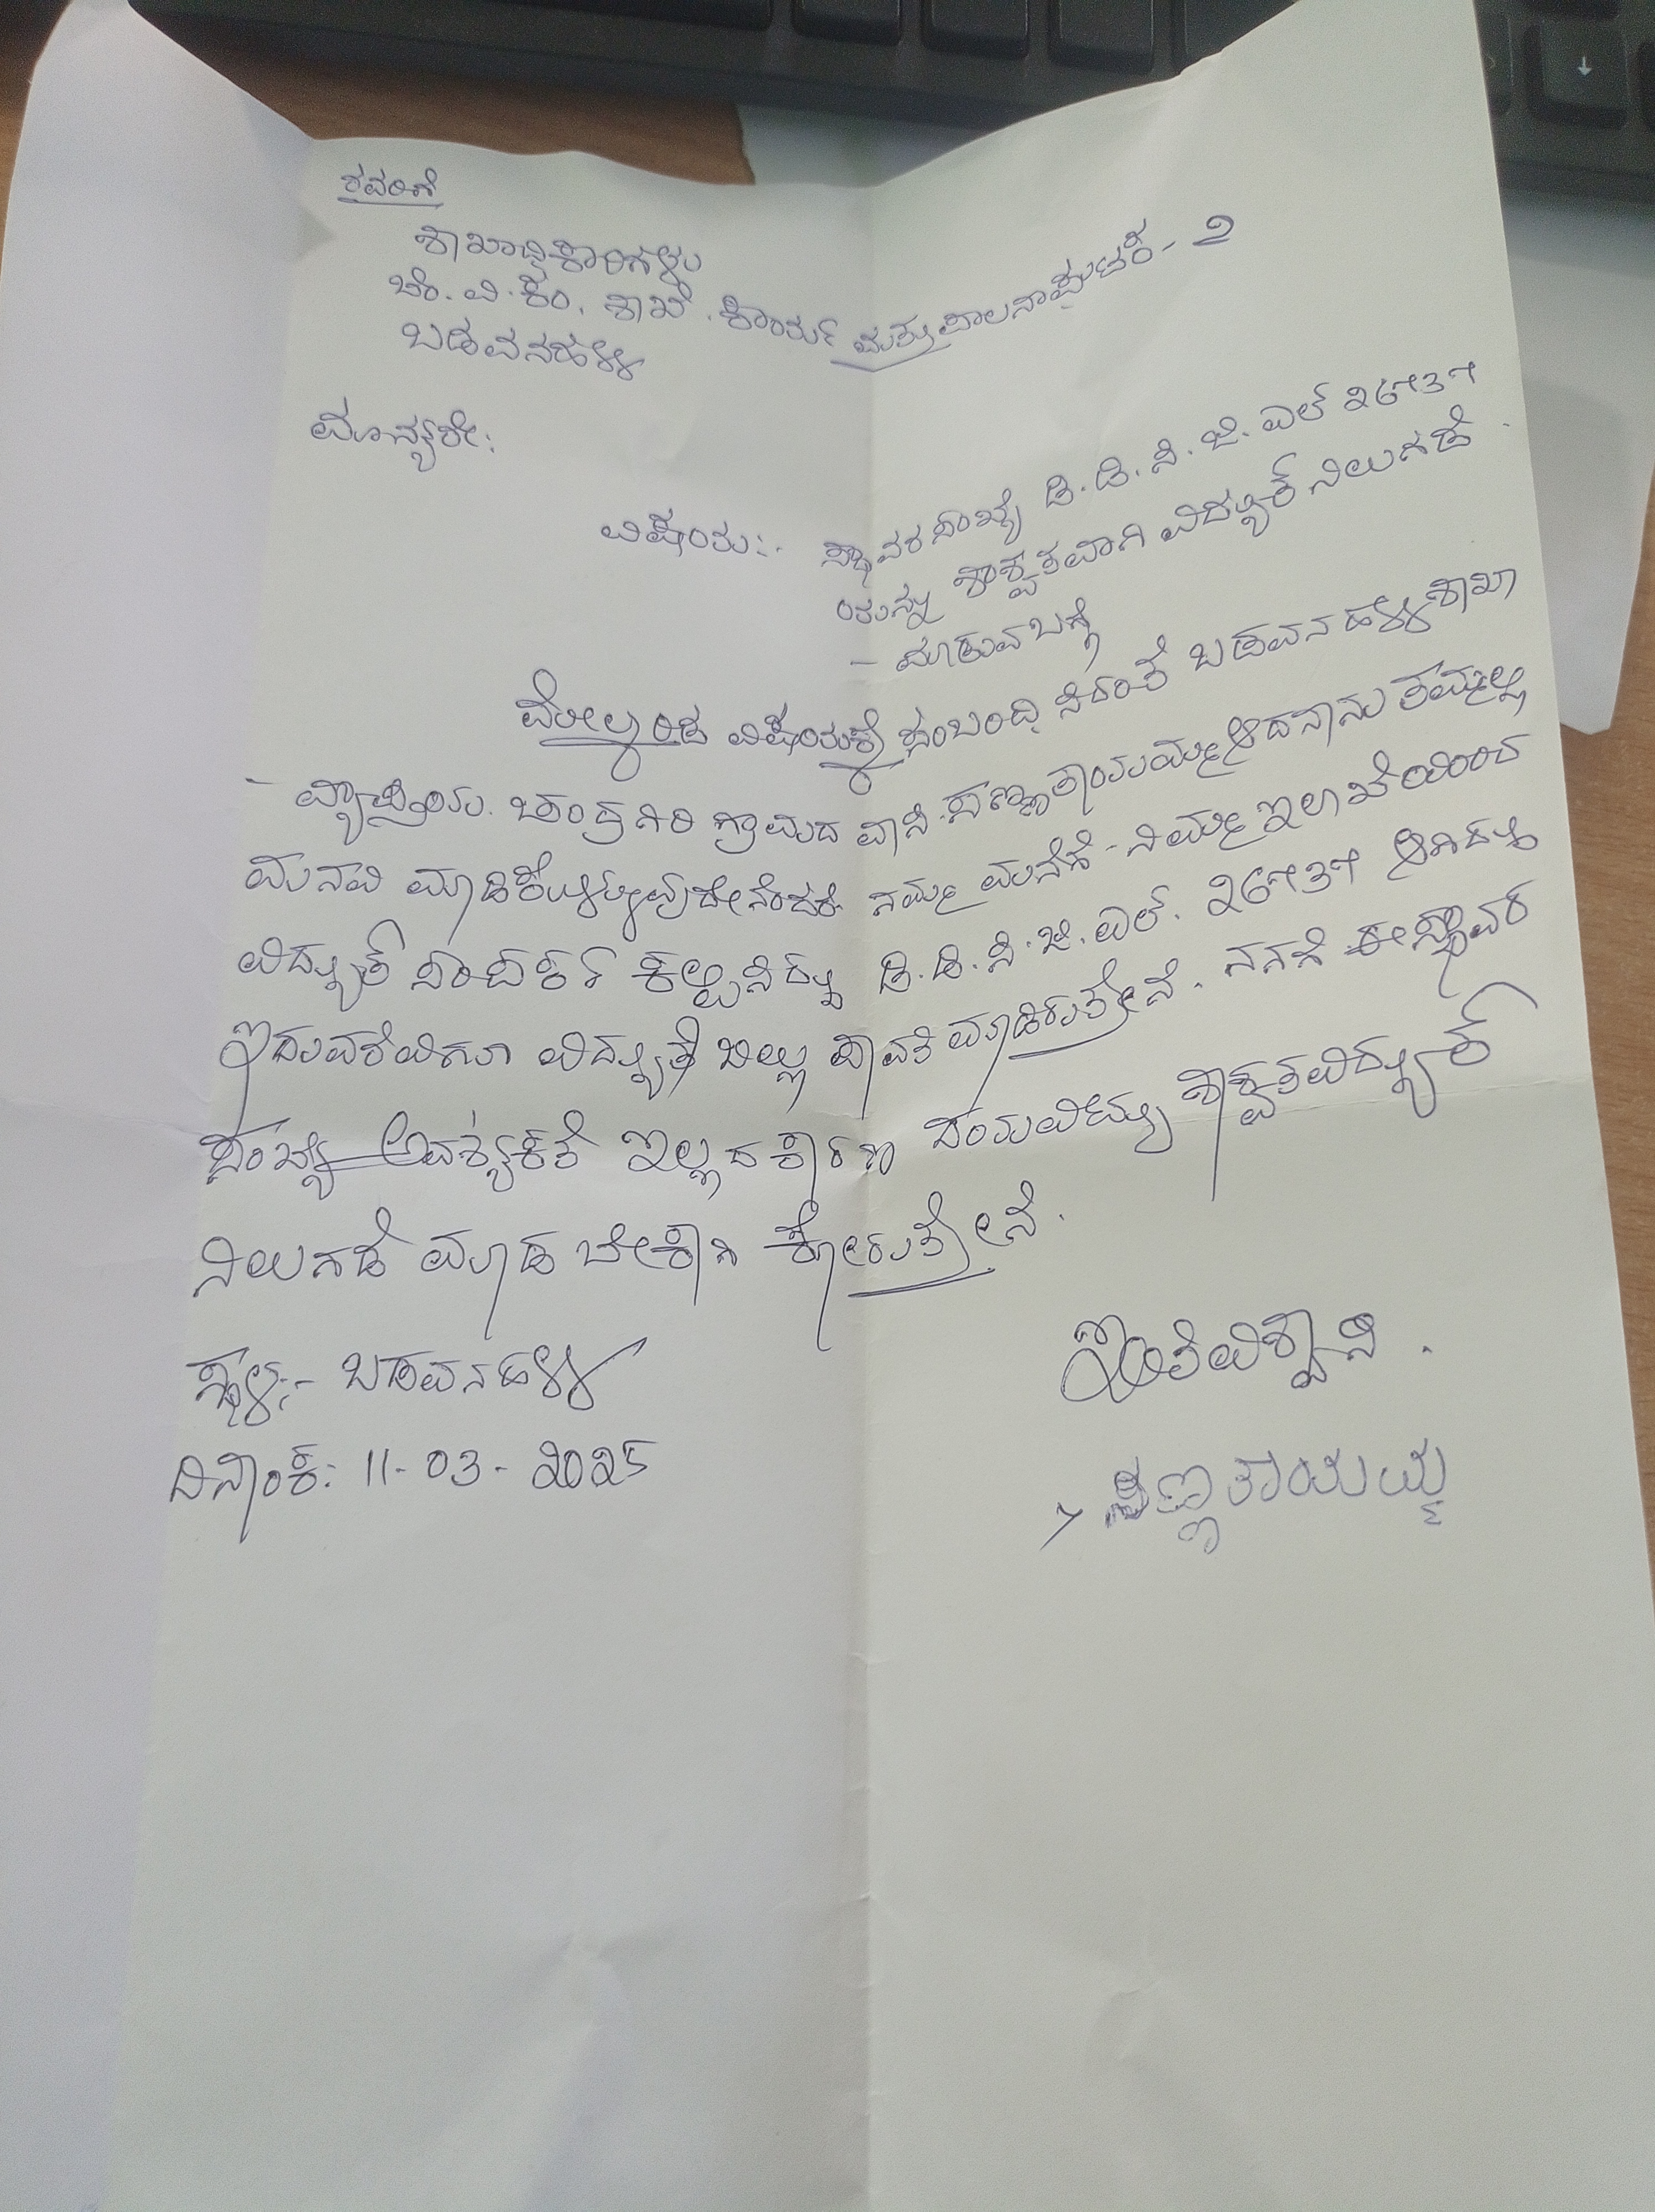 ರವರಿಗೆ
ಶಾಖಾಧಿಕಾರಿಗಳು
ಬೆ.ವಿ.ಕಂ. ಶಾಖೆ. ಕಾರ್ಯ ಮತ್ತು ಪಾಲನಾಘಟಕ - ೨
ಬಡವನಹಳ್ಳಿ
ಮಾನ್ಯರೇ:
ವಿಷಯ:- ಸ್ಥಾವರ ಸಂಖ್ಯೆ ಡಿ.ಡಿ.ಸಿ.ಜಿ.ಎಲ್ ೨೬೯೩೯
ಯನ್ನು ಶಾಶ್ವತವಾಗಿ ವಿದ್ಯುತ್ ನಿಲುಗಡೆ
- ಮಾಡುವ ಬಗ್ಗೆ
ಮೇಲ್ಕಂಡ ವಿಷಯಕ್ಕೆ ಸಂಬಂದಿಸಿದಂತೆ ಬಡವನಹಳ್ಳಿ ಶಾಖಾ
- ವ್ಯಾಪ್ತಿಯ. ಚಂದ್ರಗಿರಿ ಗ್ರಾಮದ ವಾಸಿ. ಸಣ್ಣತಾಯಮ್ಮ ಆದ ನಾನು ತಮ್ಮಲ್ಲಿ
ಮನವಿ ಮಾಡಿಕೊಳ್ಳುವುದೇನೆಂದರೆ ನಮ್ಮ ಮನೆಗೆ - ನಿಮ್ಮ ಇಲಾಖೆಯಿಂದ
ವಿದ್ಯುತ್ ಸಂಪರ್ಕ ಕಲ್ಪಿಸಿದ್ದು ಡಿ.ಡಿ.ಸಿ.ಜಿ.ಎಲ್. ೨೬೯೩೯ ಆಗಿದ್ದು
ಇದುವರೆವಿಗೂ ವಿದ್ಯುತ್ ಬಿಲ್ಲು ಪಾವತಿ ಮಾಡಿರುತ್ತೇನೆ. ನನಗೆ ಈ ಸ್ಥಾವರ
ಸಂಖ್ಯೆ ಅವಶ್ಯಕತೆ ಇಲ್ಲದ ಕಾರಣ ದಯವಿಟ್ಟು ಶಾಶ್ವತ ವಿದ್ಯುತ್
ನಿಲುಗಡೆ ಮಾಡ ಬೇಕಾಗಿ ಕೋರುತ್ತೇನೆ.
ಸ್ಥಳ:- ಬಡವನಹಳ್ಳಿ
ಇಂತಿ ವಿಶ್ವಾಸಿ.
ದಿನಾಂಕ: 11-03-2025
ಸಣ್ಣತಾಯಮ್ಮ